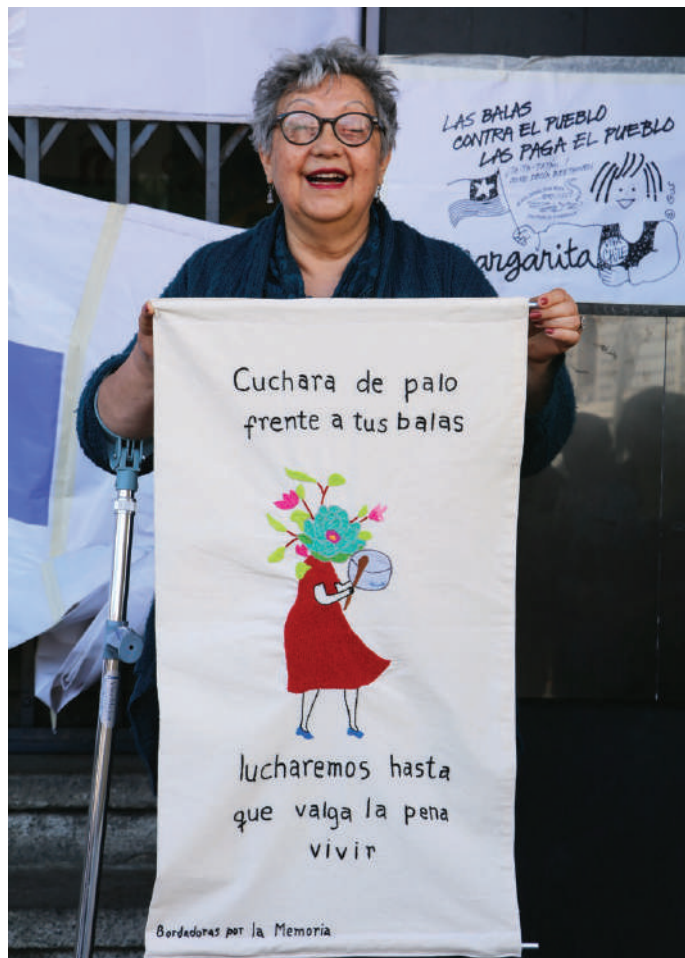 LAS BALAS
CONTRA EL PUEBLO
LAS PAGA EL PUEBLO
argarita
Cuchara de palo
frente a tus balas
lucharemos hasta
que valga la pena
vivir
Bordadoras por la Memoria